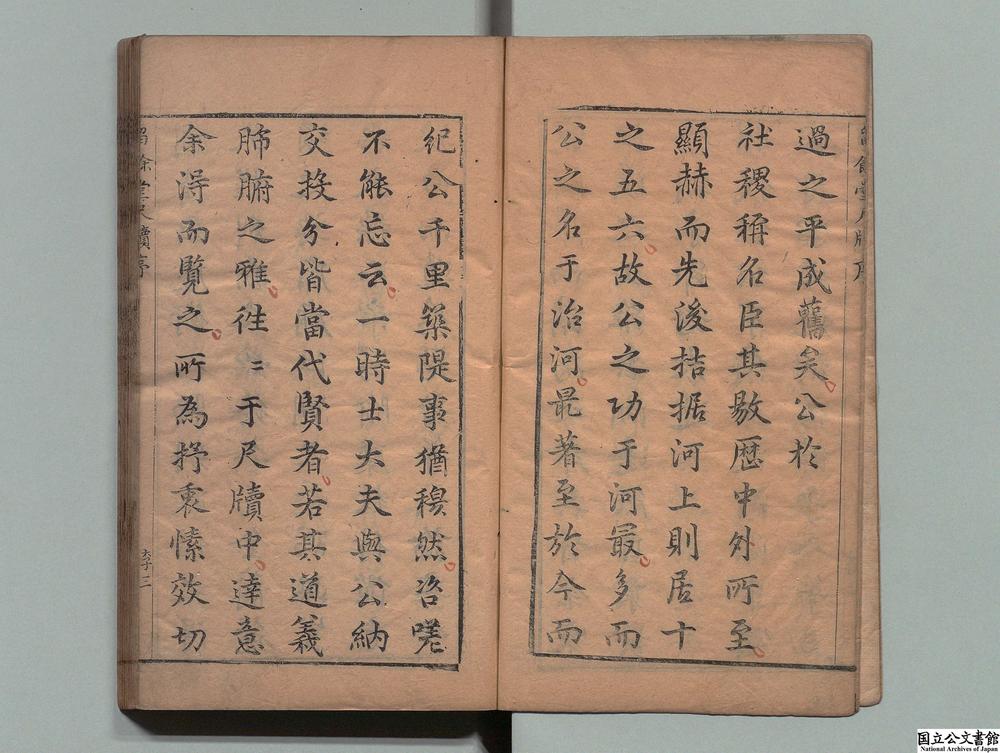 過之平成舊矣公於
社稷稱名臣其敭歷中外所至
顯赫而先後拮据河上則居十
之五六故公之功于河最多而
公之名于治河最著至於今而
紀公千里築隄事猶穆然咨嗟
不能忘云一時士大夫與公納
交投分皆當代賢者若其道義
肺腑之雅徃〻于尺牘中達意
余得而覽之所為抒衷愫效切
留餘堂尺牘序
六子三
国立公文書館
National Archives of Japan